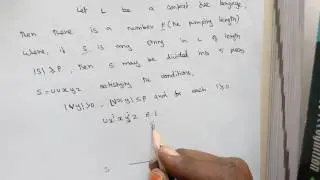 Let L be a context free language,
then there is a number P (the pumping length)
where, if S is any string in L of length
|S| ≥ P, then S may be divided into 5 pieces
S = uvxyz satisfying the conditions,
|vy| > 0, |vxy| ≤ P and for each i ≥ 0
uvⁱxyⁱz ∈ L
S